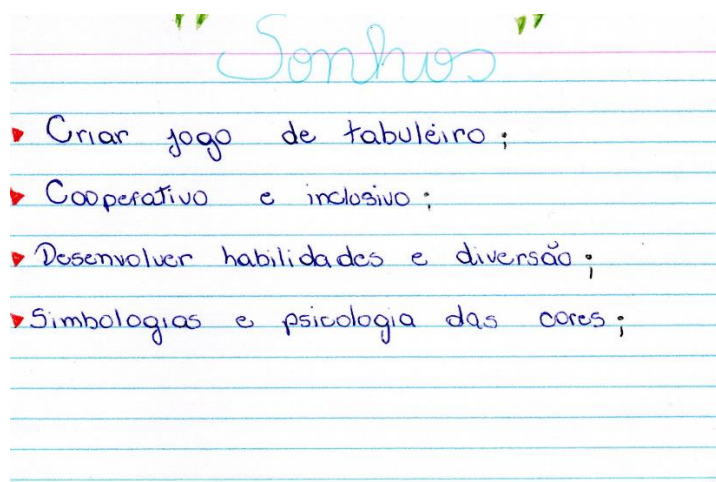 "Sonhos"
Criar jogo de tabuleiro;
Cooperativo e inclusivo;
Desenvolver habilidades e diversão;
Simbologias e psicologia das cores;